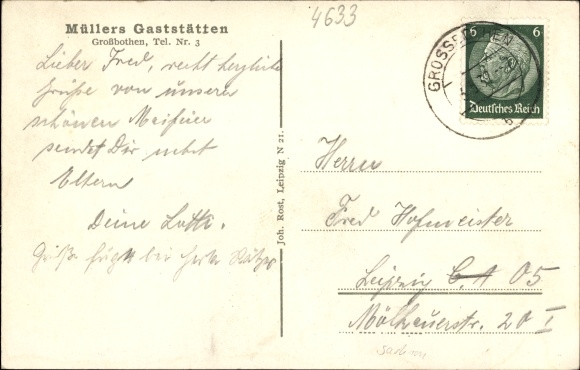 4633
Müllers Gaststätten
Großbothen, Tel. Nr. 3
Lieber Fred, recht herzliche
Grüße von unserer
schönen Maifeier
sendet Dir nebst
Eltern
Deine Lotte.
Grüße fügt bei
Joh. Rost, Leipzig N 21.
6 6
Deutsches Reich
GROSSBOTHEN
b
Herrn
Fred Hofmeister
Leipzig C 1 O5
Mölkauerstr. 20 I
Sachsen